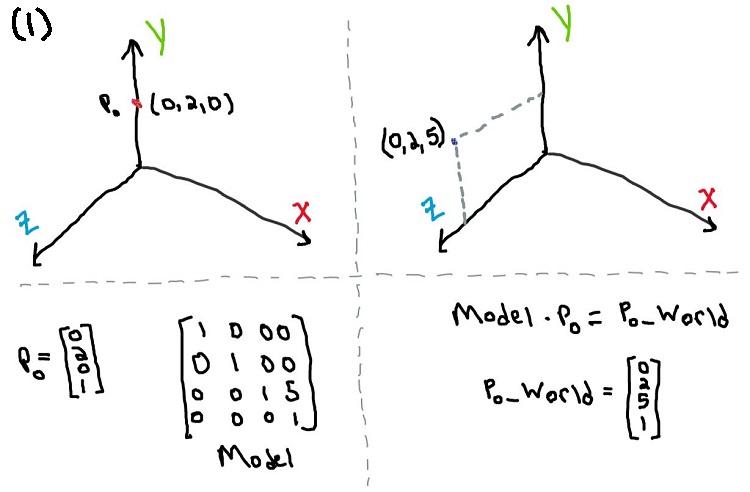 (1)
Y
P₀ (0,2,0)
Z
X
Y
(0,2,5)
Z
X
P₀ = [0 2 0 1]
1 0 0 0
0 1 0 0
0 0 1 5
0 0 0 1
Model
Model · P₀ = P₀_World
P₀_World = [0 2 5 1]